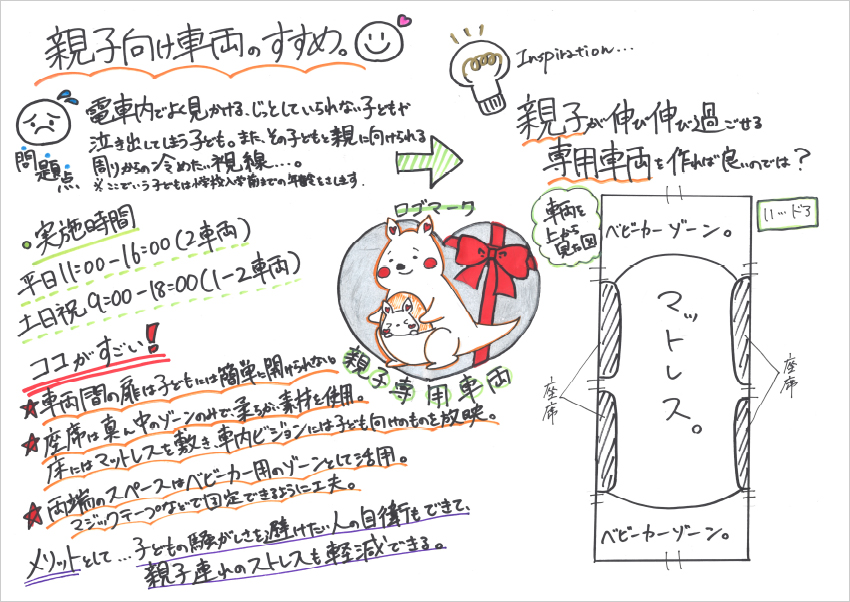 親子向け車両のすすめ。
問題点
電車内でよく見かける、じっとしていられない子どもや
泣き出してしまう子ども。また、その子どもと親に向けられる
周りからの冷めたい視線…。
※ここでいう子どもは小学校入学前までの年齢をさします。
Inspiration...
親子が伸び伸び過ごせる
専用車両を作れば良いのでは?
・実施時間
平日11:00-16:00(2車両)
土日祝9:00-18:00(1-2車両)
ロゴマーク
親子専用車両
ココがすごい!
★車両間の扉は子どもには簡単に開けられない。
★座席は真ん中のゾーンのみで、柔らかい素材を使用。
床にはマットレスを敷き、車内ビジョンには子ども向けのものを放映。
★両端のスペースはベビーカー用のゾーンとして活用。
マジックテープなどで固定できるように工夫。
メリットとして…子どもの騒がしさを避けたい人の自衛もできて、
親子連れのストレスも軽減できる。
車両を
上から
見た図
ベビーカーゾーン。
マットレス。
座席
座席
ベビーカーゾーン。